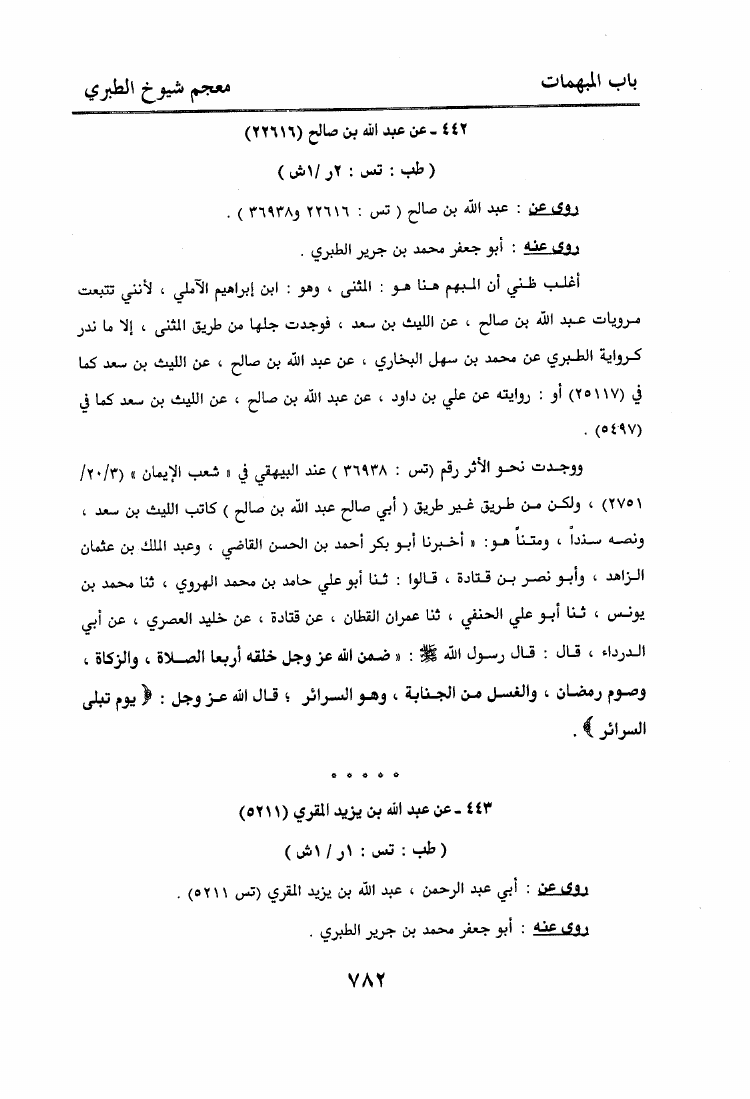 باب المبهمات
معجم شيوخ الطبري
٤٤٢ ـ عن عبد الله بن صالح (٢٢٦١٦)
( طب : تس : ٢ر /١ش )
روى عن : عبد الله بن صالح ( تس : ٢٢٦١٦ و٣٦٩٣٨ ) .
روى عنه : أبو جعفر محمد بن جرير الطبري .
أغلب ظني أن المبهم هنا هو : المثنى ، وهو : ابن إبراهيم الآملي ، لأنني تتبعت
مرويات عبد الله بن صالح ، عن الليث بن سعد ، فوجدت جلها من طريق المثنى ، إلا ما ندر
كرواية الطبري عن محمد بن سهل البخاري ، عن عبد الله بن صالح ، عن الليث بن سعد كما
في (٢٥١١٧) أو : روايته عن علي بن داود ، عن عبد الله بن صالح ، عن الليث بن سعد كما في
(٥٤٩٧) .
ووجدت نحو الأثر رقم (تس : ٣٦٩٣٨ ) عند البيهقي في « شعب الإيمان » (٢٠/٣/
٢٧٥١) ، ولكن من طريق غير طريق ( أبي صالح عبد الله بن صالح ) كاتب الليث بن سعد ،
ونصه سنداً ، ومتناً هو: « أخبرنا أبو بكر أحمد بن الحسن القاضي ، وعبد الملك بن عثمان
الزاهد ، وأبو نصر بن قتادة ، قالوا : ثنا أبو علي حامد بن محمد الهروي ، ثنا محمد بن
يونس ، ثنا أبو علي الحنفي ، ثنا عمران القطان ، عن قتادة ، عن خليد العصري ، عن أبي
الدرداء ، قال : قال رسول الله ﷺ : « ضمن الله عز وجل خلقه أربعا الصلاة ، والزكاة ،
وصوم رمضان ، والغسل من الجنابة ، وهو السرائر ؛ قال الله عز وجل : ﴿ يوم تبلى
السرائر ﴾ .
٤٤٣ ـ عن عبد الله بن يزيد المقري (٥٢١١)
( طب : تس : ١ر /١ش )
روى عن : أبي عبد الرحمن ، عبد الله بن يزيد المقري (تس ٥٢١١) .
روى عنه : أبو جعفر محمد بن جرير الطبري .
٧٨٢